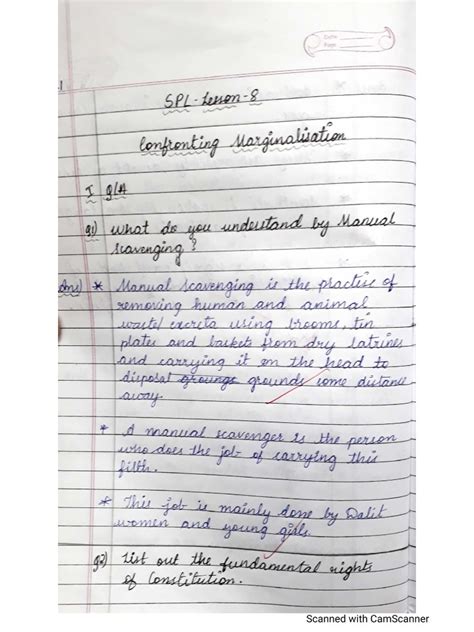 Date
Page
SPL - Lesson - 8
Confronting Marginalisation
I Q/A
Q1) What do you understand by Manual
Scavenging ?
Ans) * Manual scavenging is the practise of
removing human and animal
waste/excreta using brooms, tin
plates and baskets from dry latrines
and carrying it on the head to
disposal grounge grounds some distance
away.
* A manual scavenger is the person
who does the job of carrying this
filth.
* This job is mainly done by Dalit
women and young girls.
Q2) List out the fundamental rights
of Constitution.
Scanned with CamScanner